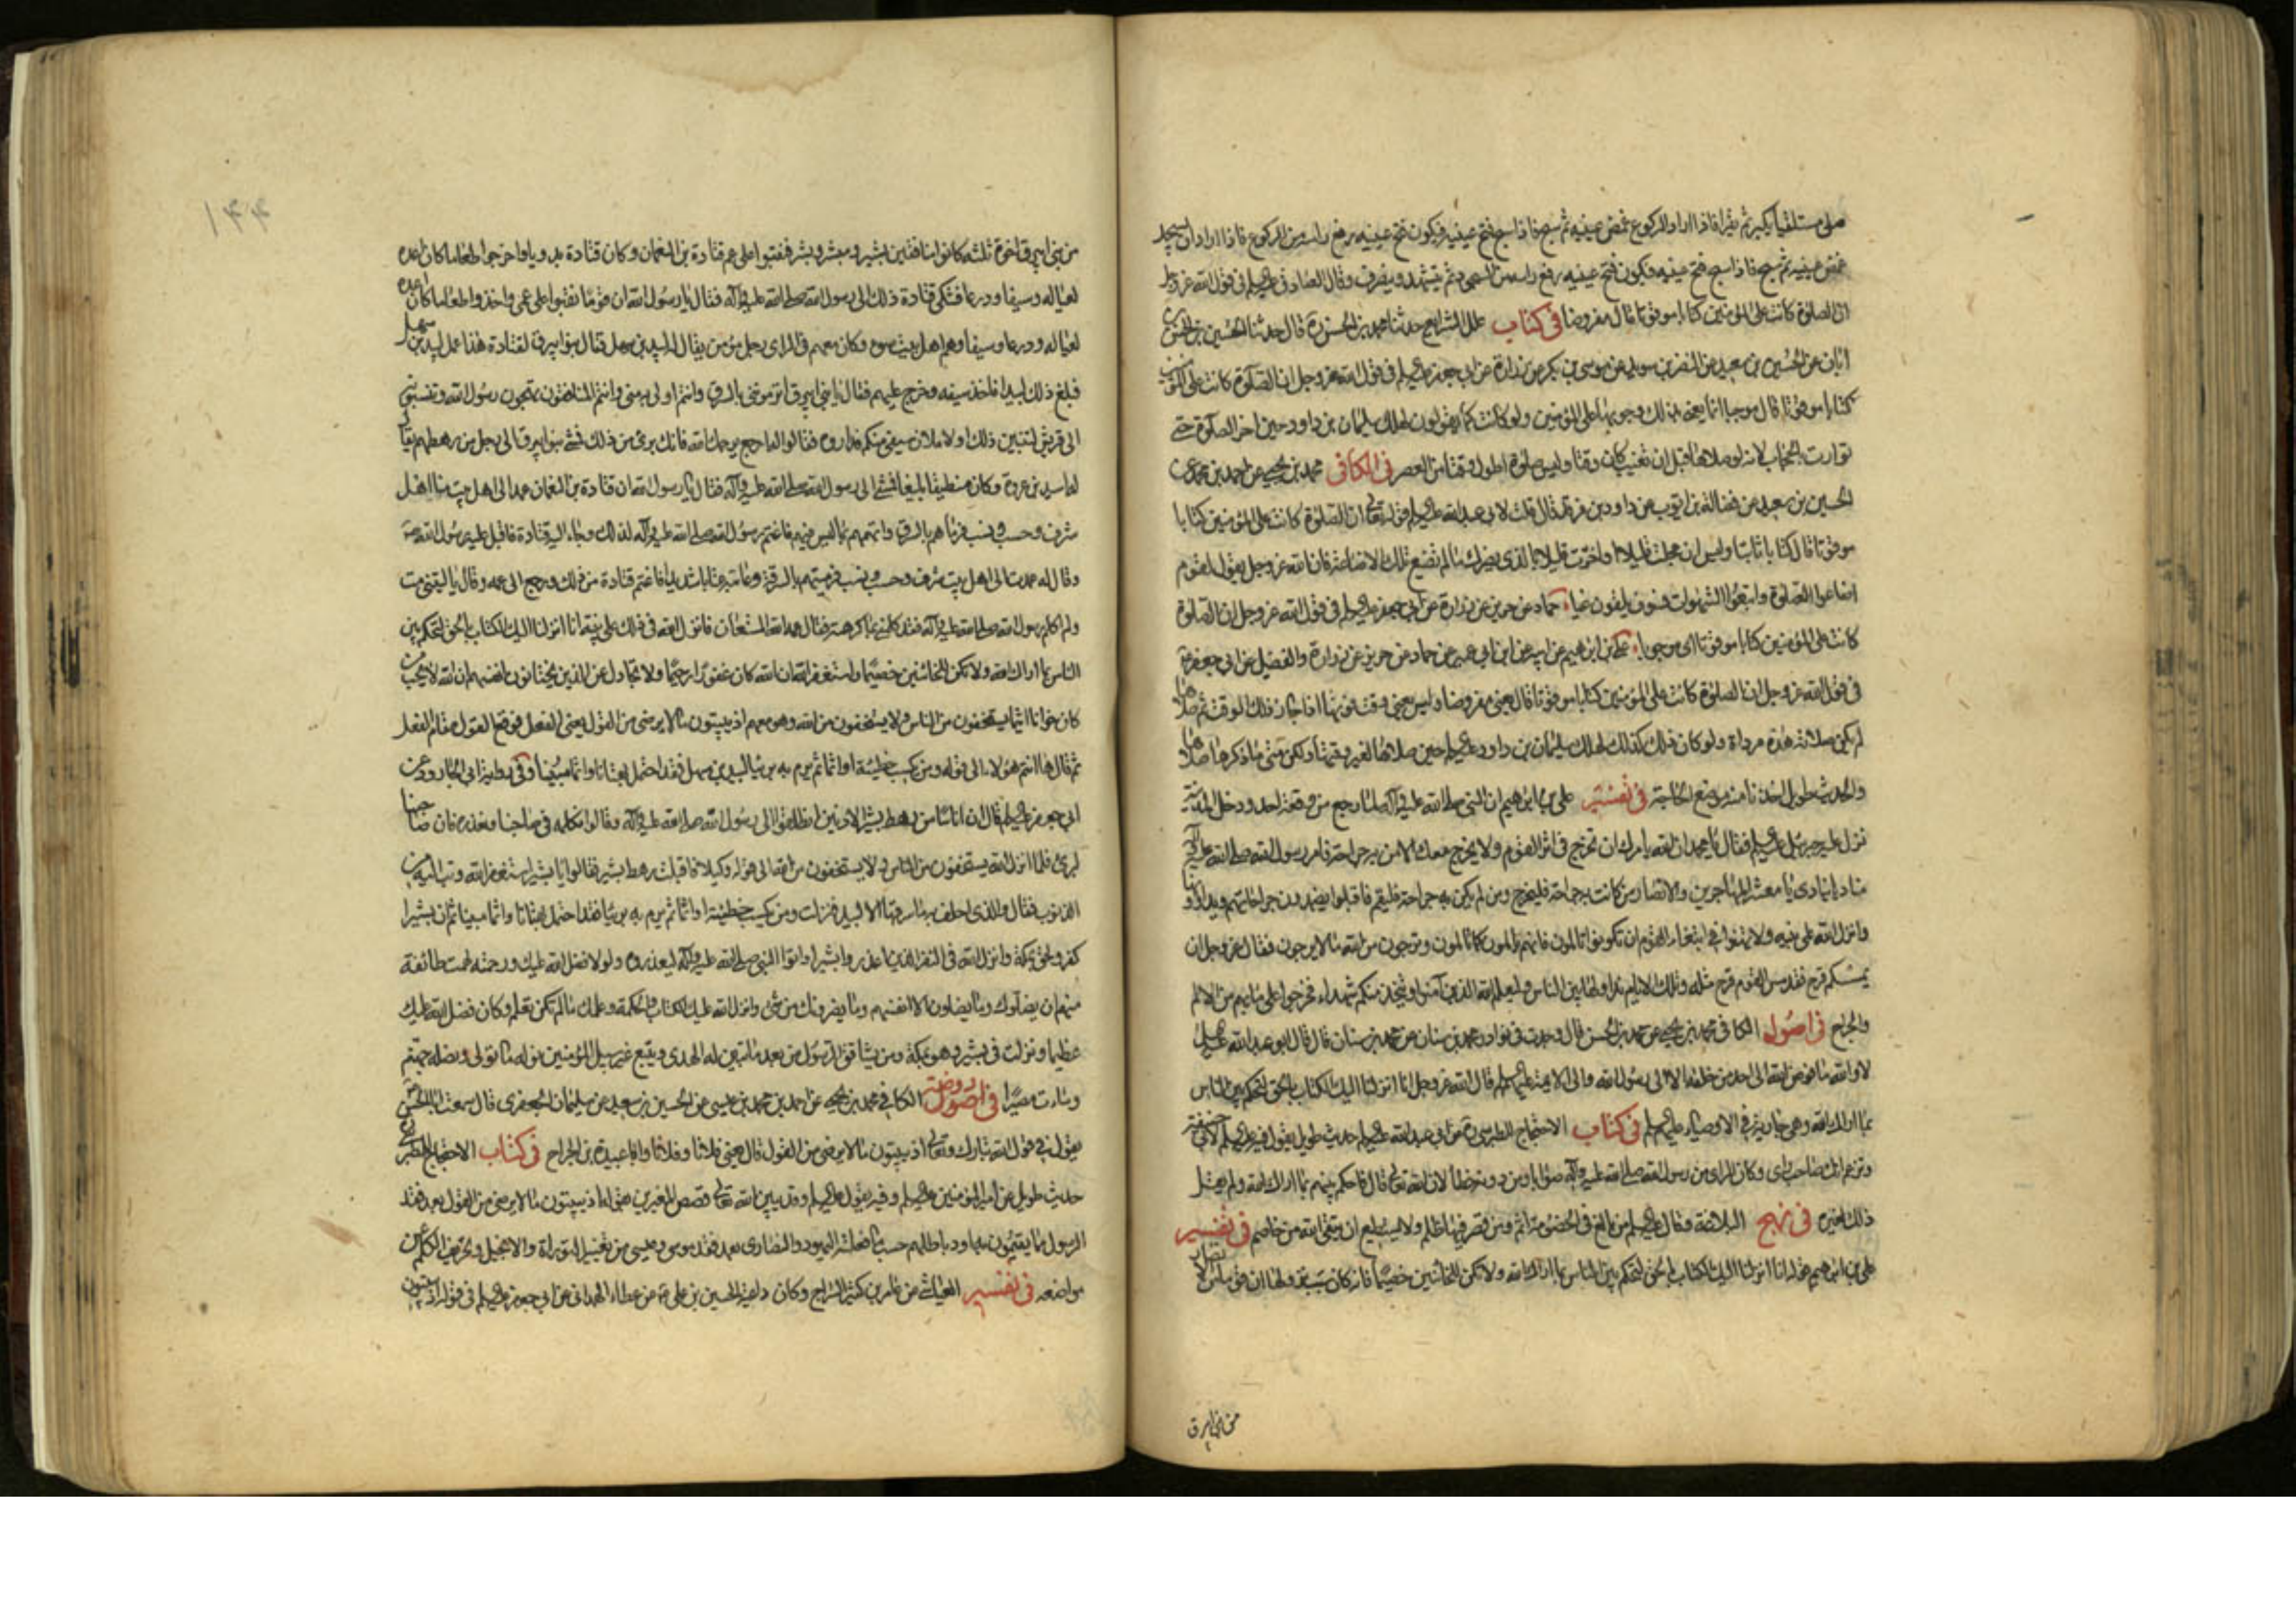 صلى مستلقيا يكبر ثم يقرا فاذا اراد الركوع غمض عينيه ثم سبح فاذا سبح فتح عينيه فيكون فتح عينيه رفع راسه من الركوع فاذا اراد ان يسجد
غمض عينيه ثم سبح فاذا سبح فتح عينيه فيكون فتح عينيه رفع راسه من السجود ثم يتشهد وينصرف وقال الصادق عليه السلم فى قول الله عز وجل
ان الصلوة كانت على المؤمنين كتابا موقوتا قال مفروضا فى كتاب علل الشرايع حدثنا محمد بن الحسن ره قال حدثنا الحسين بن الحسن
ابان عن الحسين بن سعيد عن النضر بن سويد عن موسى بن بكر عن زرارة عن ابى جعفر عليه السلم فى قول الله عز وجل ان الصلوة كانت على المؤمنين
كتابا موقوتا قال موجبا انما يعنى بذلك وجوبها على المؤمنين ولو كانت كما يقولون لهلك سليمان بن داود حين اخر الصلوة حتى
توارت بالحجاب لانه لو صلاها قبل ان تغيب كان وقتا وليس صلوة اطول وقتا من العصر فى الكافى محمد بن يحيى عن احمد بن محمد عن
الحسين بن سعيد عن فضالة بن ايوب عن داود بن فرقد قال قلت لابى عبد الله عليه السلم قوله تعالى ان الصلوة كانت على المؤمنين كتابا
موقوتا قال كتابا ثابتا وليس ان عجلت قليلا او اخرت قليلا بالذى يضرك ما لم تضيع تلك الاضاعة فان الله عز وجل يقول لقوم
اضاعوا الصلوة واتبعوا الشهوات فسوف يلقون غيا حماد عن حريز عن زرارة عن ابى جعفر عليه السلم فى قول الله عز وجل ان الصلوة
كانت على المؤمنين كتابا موقوتا اى موجوبا على بن ابراهيم عن ابيه عن ابن ابى عمير عن حماد عن حريز عن زرارة والفضيل عن ابى جعفر
فى قول الله عز وجل ان الصلوة كانت على المؤمنين كتابا موقوتا قال يعنى مفروضا وليس يعنى وقت فوتها اذا جاز ذلك الوقت ثم صلاها
لم يكن صلاته هذه مرداة ولو كان ذلك كذلك لهلك سليمان بن داود عليه السلم حين صلاها لغير وقتها ولكن متى ما ذكرها صلاها
والحديث طويل اخذنا منه موضع الحاجة فى تفسير على بن ابراهيم ان النبى صلى الله عليه وآله لما رجع من وقعة احد ودخل المدينة
نزل عليه جبرئيل عليه السلم فقال يا محمد ان الله يامرك ان تخرج فى اثر القوم ولا يخرج معك الا من به جراحة فامر رسول الله صلى الله عليه وآله
مناديا ينادى يا معشر المهاجرين والانصار من كانت به جراحة فليخرج ومن لم يكن به جراحة فليقم فاقبلوا يضمدون جراحاتهم ويداوونها
وانزل الله على نبيه ولا تهنوا فى ابتغاء القوم ان تكونوا تالمون فانهم يالمون كما تالمون وترجون من الله ما لا يرجون فقال عز وجل ان
يمسسكم قرح فقد مس القوم قرح مثله وتلك الايام نداولها بين الناس وليعلم الله الذين آمنوا ويتخذ منكم شهداء فخرجوا على ما بهم من الالم
والجراح فى اصول الكافى محمد بن يحيى عن محمد بن الحسن قال وجدت فى نوادر محمد بن سنان عن محمد بن سنان قال قال ابو عبد الله عليه السلم
لا والله ما فوض الله الى احد من خلقه الا الى رسول الله والى الائمة عليهم السلم قال الله عز وجل انا انزلنا اليك الكتاب بالحق لتحكم بين الناس
بما اراك الله وهى جارية فى الاوصياء عليهم السلم فى كتاب الاحتجاج للطبرسى ره عن ابى عبد الله عليه السلم حديث طويل يقول فيه عليه السلم لابى حنيفة
وتزعم انك صاحب راى وكان الراى من رسول الله صلى الله عليه وآله صوابا ومن دونه خطأ لان الله تعالى قال فاحكم بينهم بما اراك الله ولم يقل
ذلك لغيره فى نهج البلاغة وقال عليه السلم من بالغ فى الخصومة اثم ومن قصر فيها ظلم ولا يستطيع ان يتقى الله من خاصم فى تفسير
على بن ابراهيم قوله انا انزلنا اليك الكتاب بالحق لتحكم بين الناس بما اراك الله ولا تكن للخائنين خصيما فانه كان سبب نزولها ان قوما من الانصار
من بنى ابيرق
١٤٤
من بنى ابيرق اخوة ثلثة كانوا منافقين بشير ومبشر وبشر فنقبوا على عم قتادة بن النعمان وكان قتادة بدريا واخرجوا طعاما كان اعده
لعياله وسيفا ودرعا فشكى قتادة ذلك الى رسول الله صلى الله عليه وآله فقال يا رسول الله ان قوما نقبوا على عمى واخذوا طعاما كان اعده
لعياله ودرعا وسيفا وهم اهل بيت سوء وكان معهم فى الراى رجل مؤمن يقال له لبيد بن سهل فقال بنو ابيرق لقتادة هذا عمل لبيد بن سهل
فبلغ ذلك لبيدا فاخذ سيفه وخرج عليهم فقال يا بنى ابيرق اترموننى بالسرق وانتم اولى به منى وانتم المنافقون تهجون رسول الله وتنسبونه
الى قريش لتبينن ذلك او لاملان سيفى منكم فداروه فقالوا له ارجع يرحمك الله فانك برئ من ذلك فمشى بنو ابيرق الى رجل من رهطهم يقال
له اسيد بن عروة وكان منطيقا بليغا فمشى الى رسول الله صلى الله عليه وآله فقال يا رسول الله ان قتادة بن النعمان عمد الى اهل بيت منا اهل
شرف وحسب ونسب فرماهم بالسرق واتهمهم بما ليس فيهم فاغتم رسول الله صلى الله عليه وآله لذلك وجاء اليه قتادة فاقبل عليه رسول الله ص
وقال له عمدت الى اهل بيت شرف وحسب ونسب فرميتهم بالسرقة وعاتبه عتابا شديدا فاغتم قتادة من ذلك ورجع الى عمه وقال يا ليتنى مت
ولم اكلم رسول الله صلى الله عليه وآله فقد كلمنى بما كرهته فقال عمه الله المستعان فانزل الله فى ذلك على نبيه انا انزلنا اليك الكتاب بالحق لتحكم بين
الناس بما اراك الله ولا تكن للخائنين خصيما واستغفر الله ان الله كان غفورا رحيما ولا تجادل عن الذين يختانون انفسهم ان الله لا يحب من
كان خوانا اثيما يستخفون من الناس ولا يستخفون من الله وهو معهم اذ يبيتون ما لا يرضى من القول يعنى الفعل فوقع القول مقام الفعل
ثم قال ها انتم هؤلاء الى قوله ومن يكسب خطيئة او اثما ثم يرم به بريئا لبيد بن سهل فقد احتمل بهتانا واثما مبينا وفى رواية ابى الجارود عن
ابى جعفر عليه السلم قال ان اناسا من رهط بشير الادنين انطلقوا الى رسول الله صلى الله عليه وآله وقالوا نكلمه فى صاحبنا ونعذره فان صاحبنا
لبرئ فلما انزل الله يستخفون من الناس ولا يستخفون من الله الى قوله وكيلا فاقبلت رهط بشير فقالوا يا بشير استغفر الله وتب اليه من
الذنوب فقال والذى احلف به ما سرقها الا لبيد فنزلت ومن يكسب خطيئة او اثما ثم يرم به بريئا فقد احتمل بهتانا واثما مبينا ثم ان بشيرا
كفر ولحق بمكة وانزل الله فى النفر الذين اعذروا بشيرا واتوا النبى صلى الله عليه وآله ليعذروه ولولا فضل الله عليك ورحمته لهمت طائفة
منهم ان يضلوك وما يضلون الا انفسهم وما يضرونك من شئ وانزل الله عليك الكتاب والحكمة وعلمك ما لم تكن تعلم وكان فضل الله عليك
عظيما ونزلت فى بشير وهو بمكة ومن يشاقق الرسول من بعد ما تبين له الهدى ويتبع غير سبيل المؤمنين نوله ما تولى ونصله جهنم
وساءت مصيرا فى اصول روضة الكافى محمد بن يحيى عن احمد بن محمد بن عيسى عن الحسين بن سعيد عن سليمان الجعفرى قال سمعت ابا الحسن
يقول فى قول الله تبارك وتعالى اذ يبيتون ما لا يرضى من القول قال يعنى فلانا وفلانا وابا عبيدة بن الجراح فى كتاب الاحتجاج للطبرسى
حديث طويل عن امير المؤمنين عليه السلم وفيه يقول عليه السلم وقد بين الله تعالى قصص المغيرين بقوله اذ يبيتون ما لا يرضى من القول بعد فقد
الرسول ما يقيمون به اود باطلهم حسب ما فعلته اليهود والنصارى بعد فقد موسى وعيسى من تغيير التوراة والانجيل وتحريف الكلم عن
مواضعه فى تفسير العياشى عن عامر بن كثير السراج وكان داعية الحسين بن على عن عطاء الهمدانى عن ابى جعفر عليه السلم فى قوله اذ يبيتون